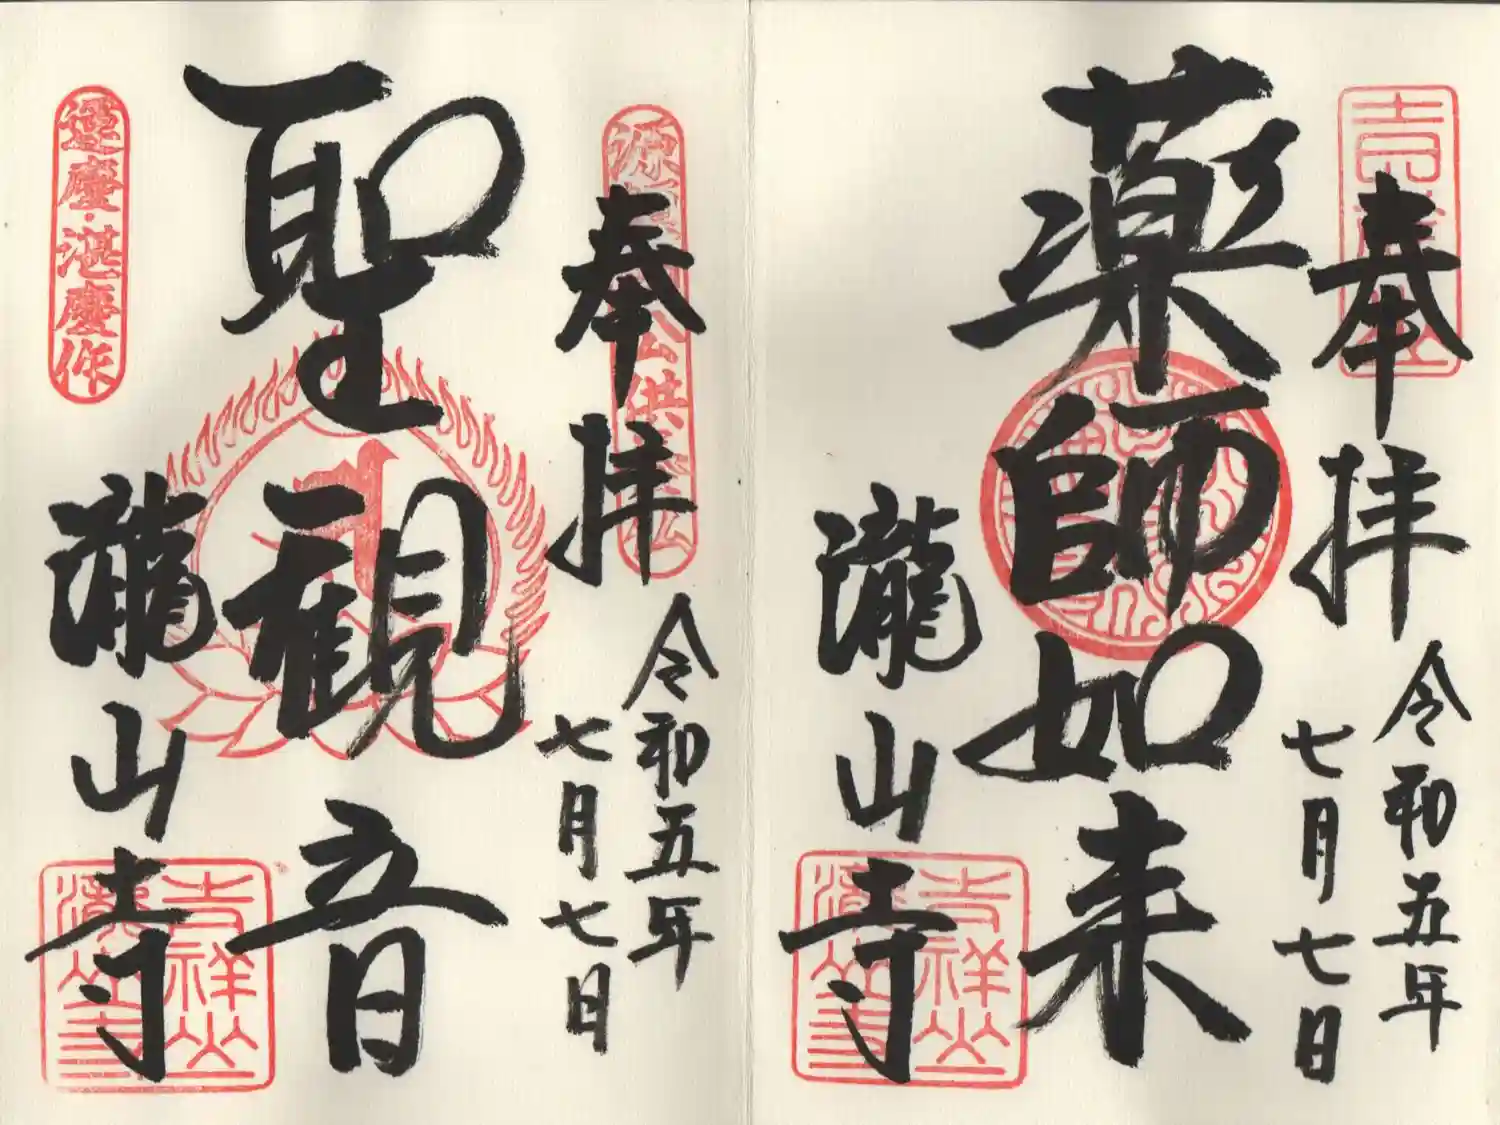 奉拝
令和五年
七月七日
薬師如来
瀧山寺
吉祥山
瀧山寺
奉拝
令和五年
七月七日
聖観音
瀧山寺
吉祥山
瀧山寺
運慶・湛慶作